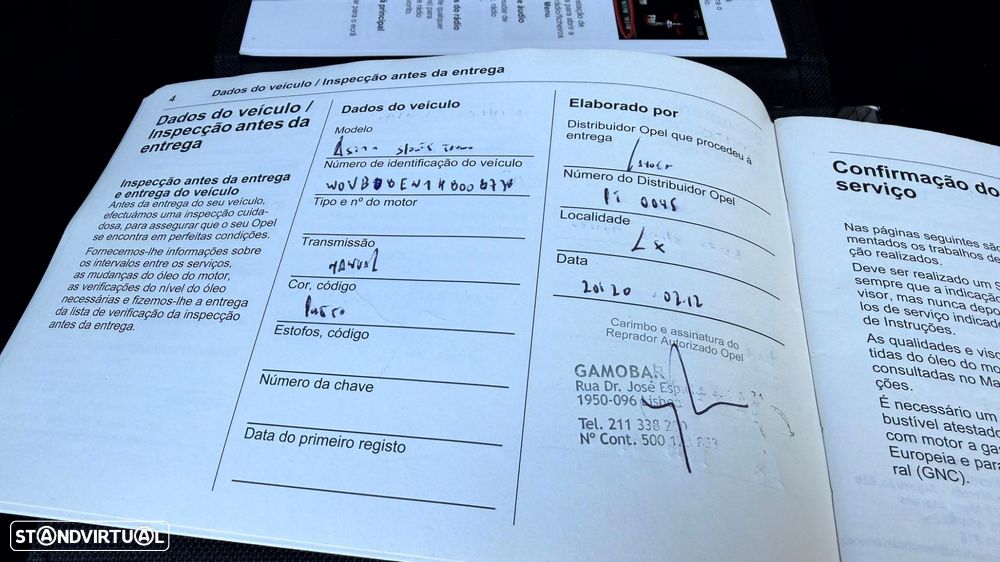 do rádio
e áudio
Menu.
principal
4 Dados do veículo / Inspecção antes da entrega
Dados do veículo /
Inspecção antes da
entrega
Inspecção antes da entrega
e entrega do veículo
Antes da entrega do seu veículo,
efectuámos uma inspecção cuida-
dosa, para assegurar que o seu Opel
se encontra em perfeitas condições.
Fornecemos-lhe informações sobre
os intervalos entre os serviços,
as mudanças do óleo do motor,
as verificações do nível do óleo
necessárias e fizemos-lhe a entrega
da lista de verificação da inspecção
antes da entrega.
Dados do veículo
Modelo
Astra Sports Tourer
Número de identificação do veículo
Tipo e nº do motor
Transmissão
Manual
Cor, código
Estofos, código
Número da chave
Data do primeiro registo
Elaborado por
Distribuidor Opel que procedeu à
entrega
Número do Distribuidor Opel
Pi 0045
Localidade
Lx
Data
02.12
Carimbo e assinatura do
Reprador Autorizado Opel
GAMOBAR
Rua Dr. José
1950-096 Lisboa
Tel. 211 338
Nº Cont. 500
Confirmação do
serviço
Nas páginas seguintes são
mentados os trabalhos de
ção realizados.
Deve ser realizado um S
sempre que a indicação
visor, mas nunca depo
los de serviço indicad
de Instruções.
As qualidades e visc
tidas do óleo do mo
consultadas no Ma
ções.
É necessário um
bustível atestado
com motor a ga
Europeia e para
ral (GNC).
STANDVIRTUAL